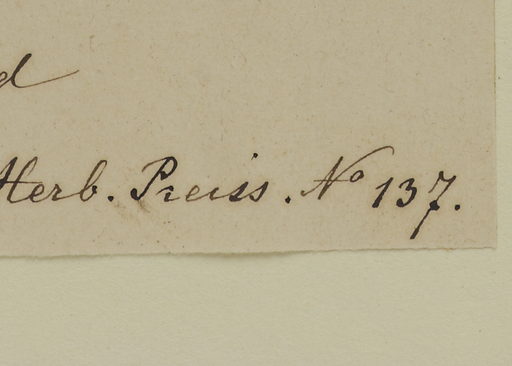 d
Herb. Preiss. No 137.